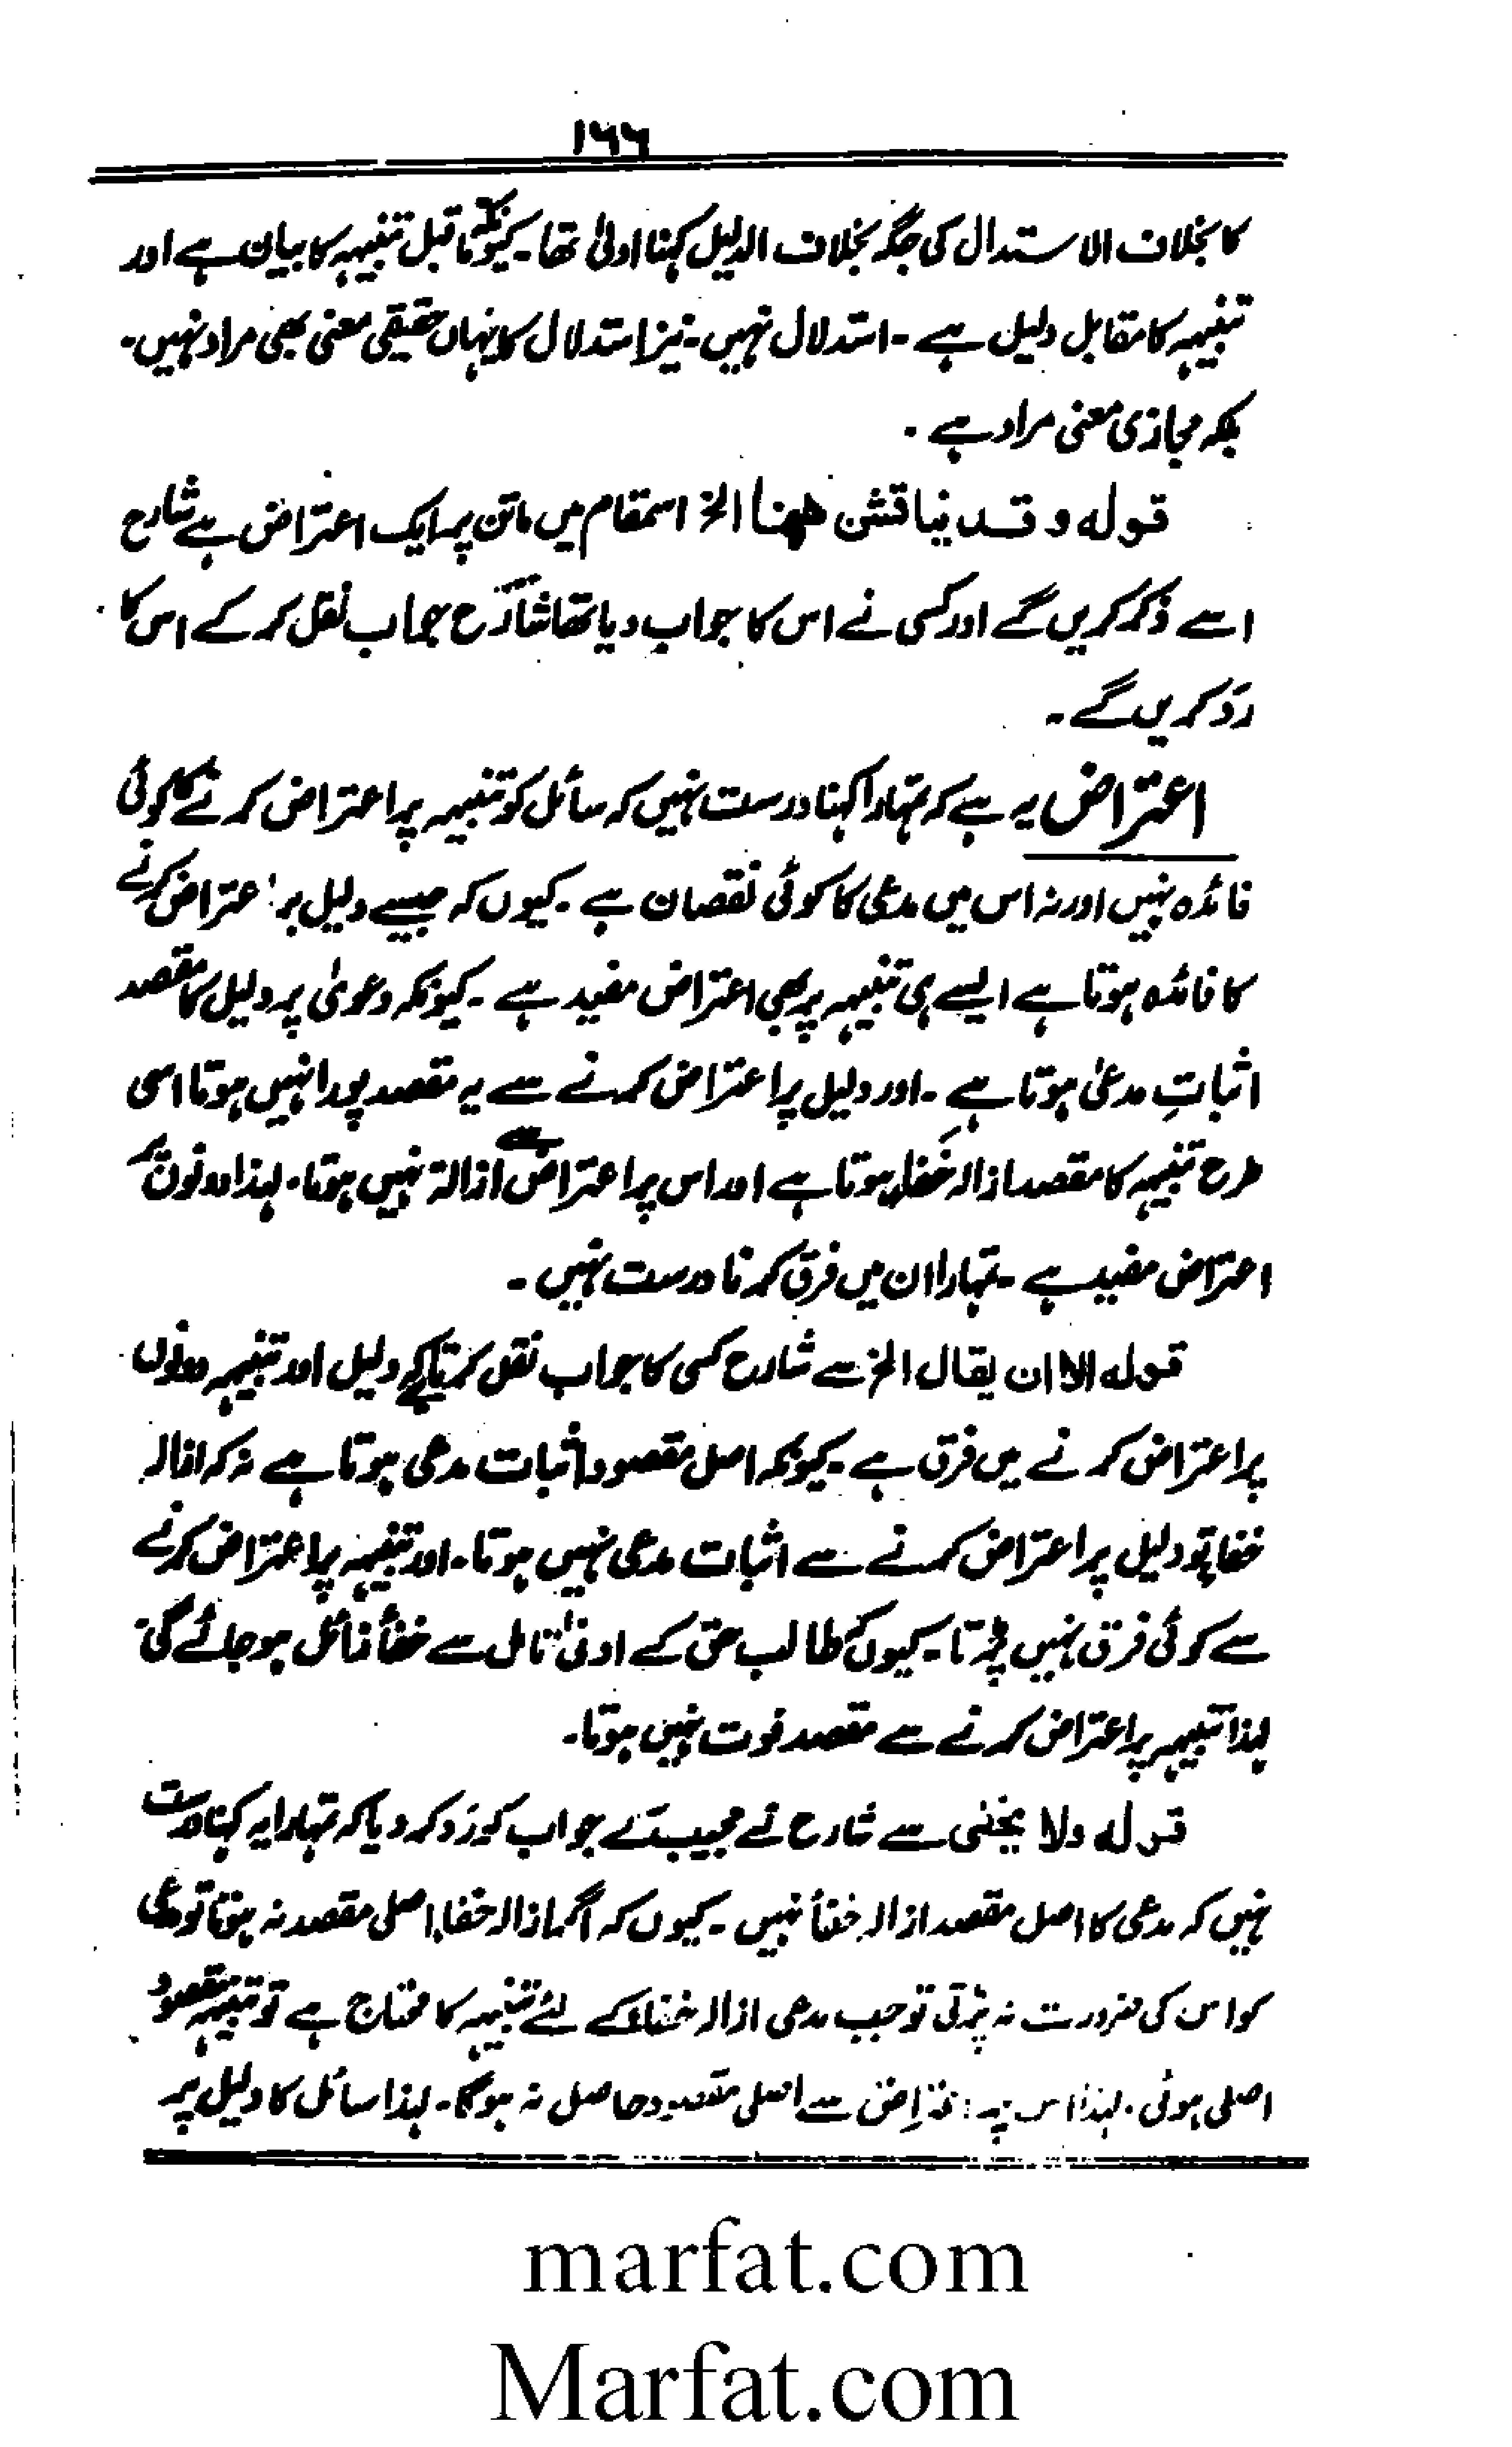 ۱۶۶
کا بخلاف الاستدلال کی جگہ بخلاف الدلیل کہنا اولیٰ تھا۔ کیونکہ ماقبل تنبیہہ کا بیان ہے اور
تنبیہہ کا مقابل دلیل ہے ۔ استدلال نہیں ۔ نیز استدلال کا یہاں حقیقی معنی بھی مراد نہیں۔
بلکہ مجازی معنی مراد ہے ۔
قولہ و قد یناقش ھھنا الخ اسمقام میں ماتن پر ایک اعتراض ہے شارح
اسے ذکر کریں گے اور کسی نے اس کا جواب دیا تھا شارح جواب نقل کر کے اس کا
ردّ کریں گے ۔
اعتراض یہ ہے کہ تمہارا کہنا درست نہیں کہ سائل کو تنبیہہ پر اعتراض کرنے کا کوئی
فائدہ نہیں اور نہ اس میں مدعی کا کوئی نقصان ہے ۔ کیوں کہ جیسے دلیل پر اعتراض کرنے
کا فائدہ ہوتا ہے ایسے ہی تنبیہہ پر بھی اعتراض مفید ہے ۔ کیونکہ دعویٰ پر دلیل کا مقصد
اثباتِ مدعیٰ ہوتا ہے ۔ اور دلیل پر اعتراض کرنے سے یہ مقصد پورا نہیں ہوتا اسی
طرح تنبیہہ کا مقصد ازالہ خفاء ہوتا ہے اور اس پر اعتراض سے ازالۃ نہیں ہوتا۔ لہذا دونوں پر
اعتراض مفید ہے ۔ تمہارا ان میں فرق کرنا درست نہیں ۔
قولہ الا ان یقال الخ سے شارح کسی کا جواب نقل کرتا ہے کہ دلیل اور تنبیہہ دونوں
پر اعتراض کرنے میں فرق ہے ۔ کیونکہ اصل مقصود اثبات مدعی ہوتا ہے نہ کہ ازالہ
خفاء تو دلیل پر اعتراض کرنے سے اثبات مدعی نہیں ہوتا ۔ اور تنبیہہ پر اعتراض کرنے
سے کوئی فرق نہیں پڑتا ۔ کیوں کہ طالب حق کے ادنیٰ تامل سے خفأ زائل ہو جائے گی
لہذا تنبیہہ پر اعتراض کرنے سے مقصد فوت نہیں ہوتا۔
قولہ ولا یخفی سے شارح نے مجیب کے جواب کو ردّ کر دیا کہ تمہارا یہ کہنا درست
نہیں کہ مدعی کا اصل مقصد ازالہ خفأ نہیں ۔ کیوں کہ اگر ازالہ خفاء اصلی مقصد نہ ہوتا تو مدعی
کو اس کی ضرورت نہ پڑتی تو جب مدعی ازالہ خفاء کے لئے تنبیہہ کا محتاج ہے تو تنبیہہ مقصود
اصلی ہوئی ۔ لہذا اس پر اعتراض سے اصلی مقصود حاصل نہ ہوگا ۔ لہذا سائل کا دلیل پر
marfat.com
Marfat.com